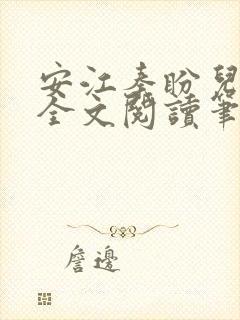 安江秦盼兒
全文閱讀筆
詹邊